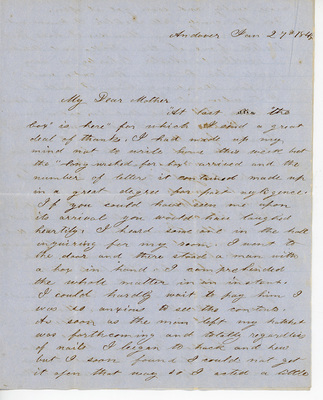 Andover Jan 27th
My Dear Mother
"At last the
box is here" for which I send a great
deal of thanks. I had made up my
mind not to write home this week but
the "long waited for box" arrived and the
number of letters it contained made up
in a great degree for past negligence.
If you could have seen me upon
its arrival you would have laughed
heartily. I heard some one in the hall
inquiring for my room. I went to
the door and there stood a man with
a box in hand. I comprehended
the whole matter in an instant.
I could hardly wait to pay him I
was so anxious to see the contents.
As soon as the man left my hatchet
was forthcoming and totally regardless
of nails I began to hack and hew
but I soon found I could not get
it open that way so I acted a little